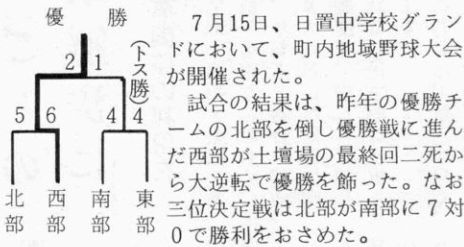 優勝
2 1
(トス勝)
5 6 4 4
北部 西部 南部 東部
7月15日、日置中学校グラン
ドにおいて、町内地域野球大会
が開催された。
試合の結果は、昨年の優勝チ
ームの北部を倒し優勝戦に進ん
だ西部が土壇場の最終回二死か
ら大逆転で優勝を飾った。なお
三位決定戦は北部が南部に7対
0で勝利をおさめた。